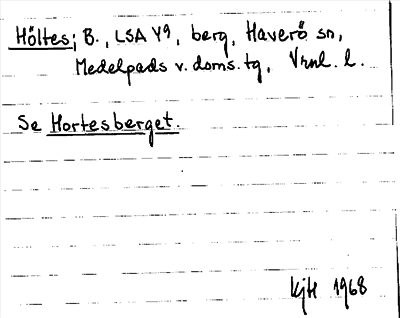 Höltes; B., LSA Y9, berg, Haverö sn,
Medelpads v. doms. tg, Vrnl. l.
Se Hortesberget.
kjH 1968